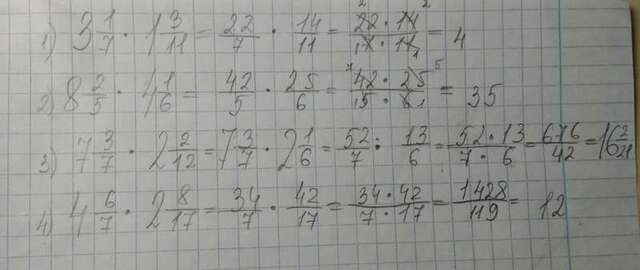 1) 3 1/7 · 1 3/11 = 22/7 · 14/11 = 22 · 14/7 · 11 = 4
2) 8 2/5 · 4 1/6 = 42/5 · 25/6 = 42 · 25/5 · 6 = 35
3) 7 3/7 · 2 2/12 = 7 3/7 · 2 1/6 = 52/7 : 13/6 = 52 · 13/7 · 6 = 676/42 = 16 2/21
4) 4 6/7 · 2 8/17 = 34/7 · 42/17 = 34 · 42/7 · 17 = 1428/119 = 12